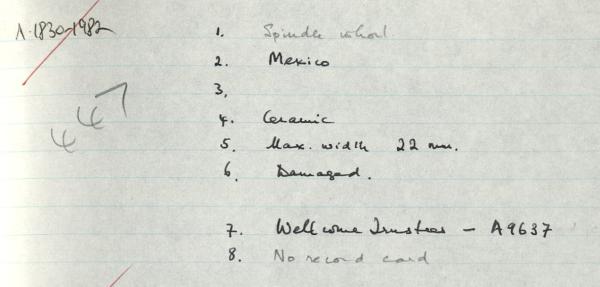 A.1830-1982
1. Spindle whorl
2. Mexico
3.
4. Ceramic
5. Max. width 22 mm.
6. Damaged.
7. Wellcome Trustees - A9637
8. No record card